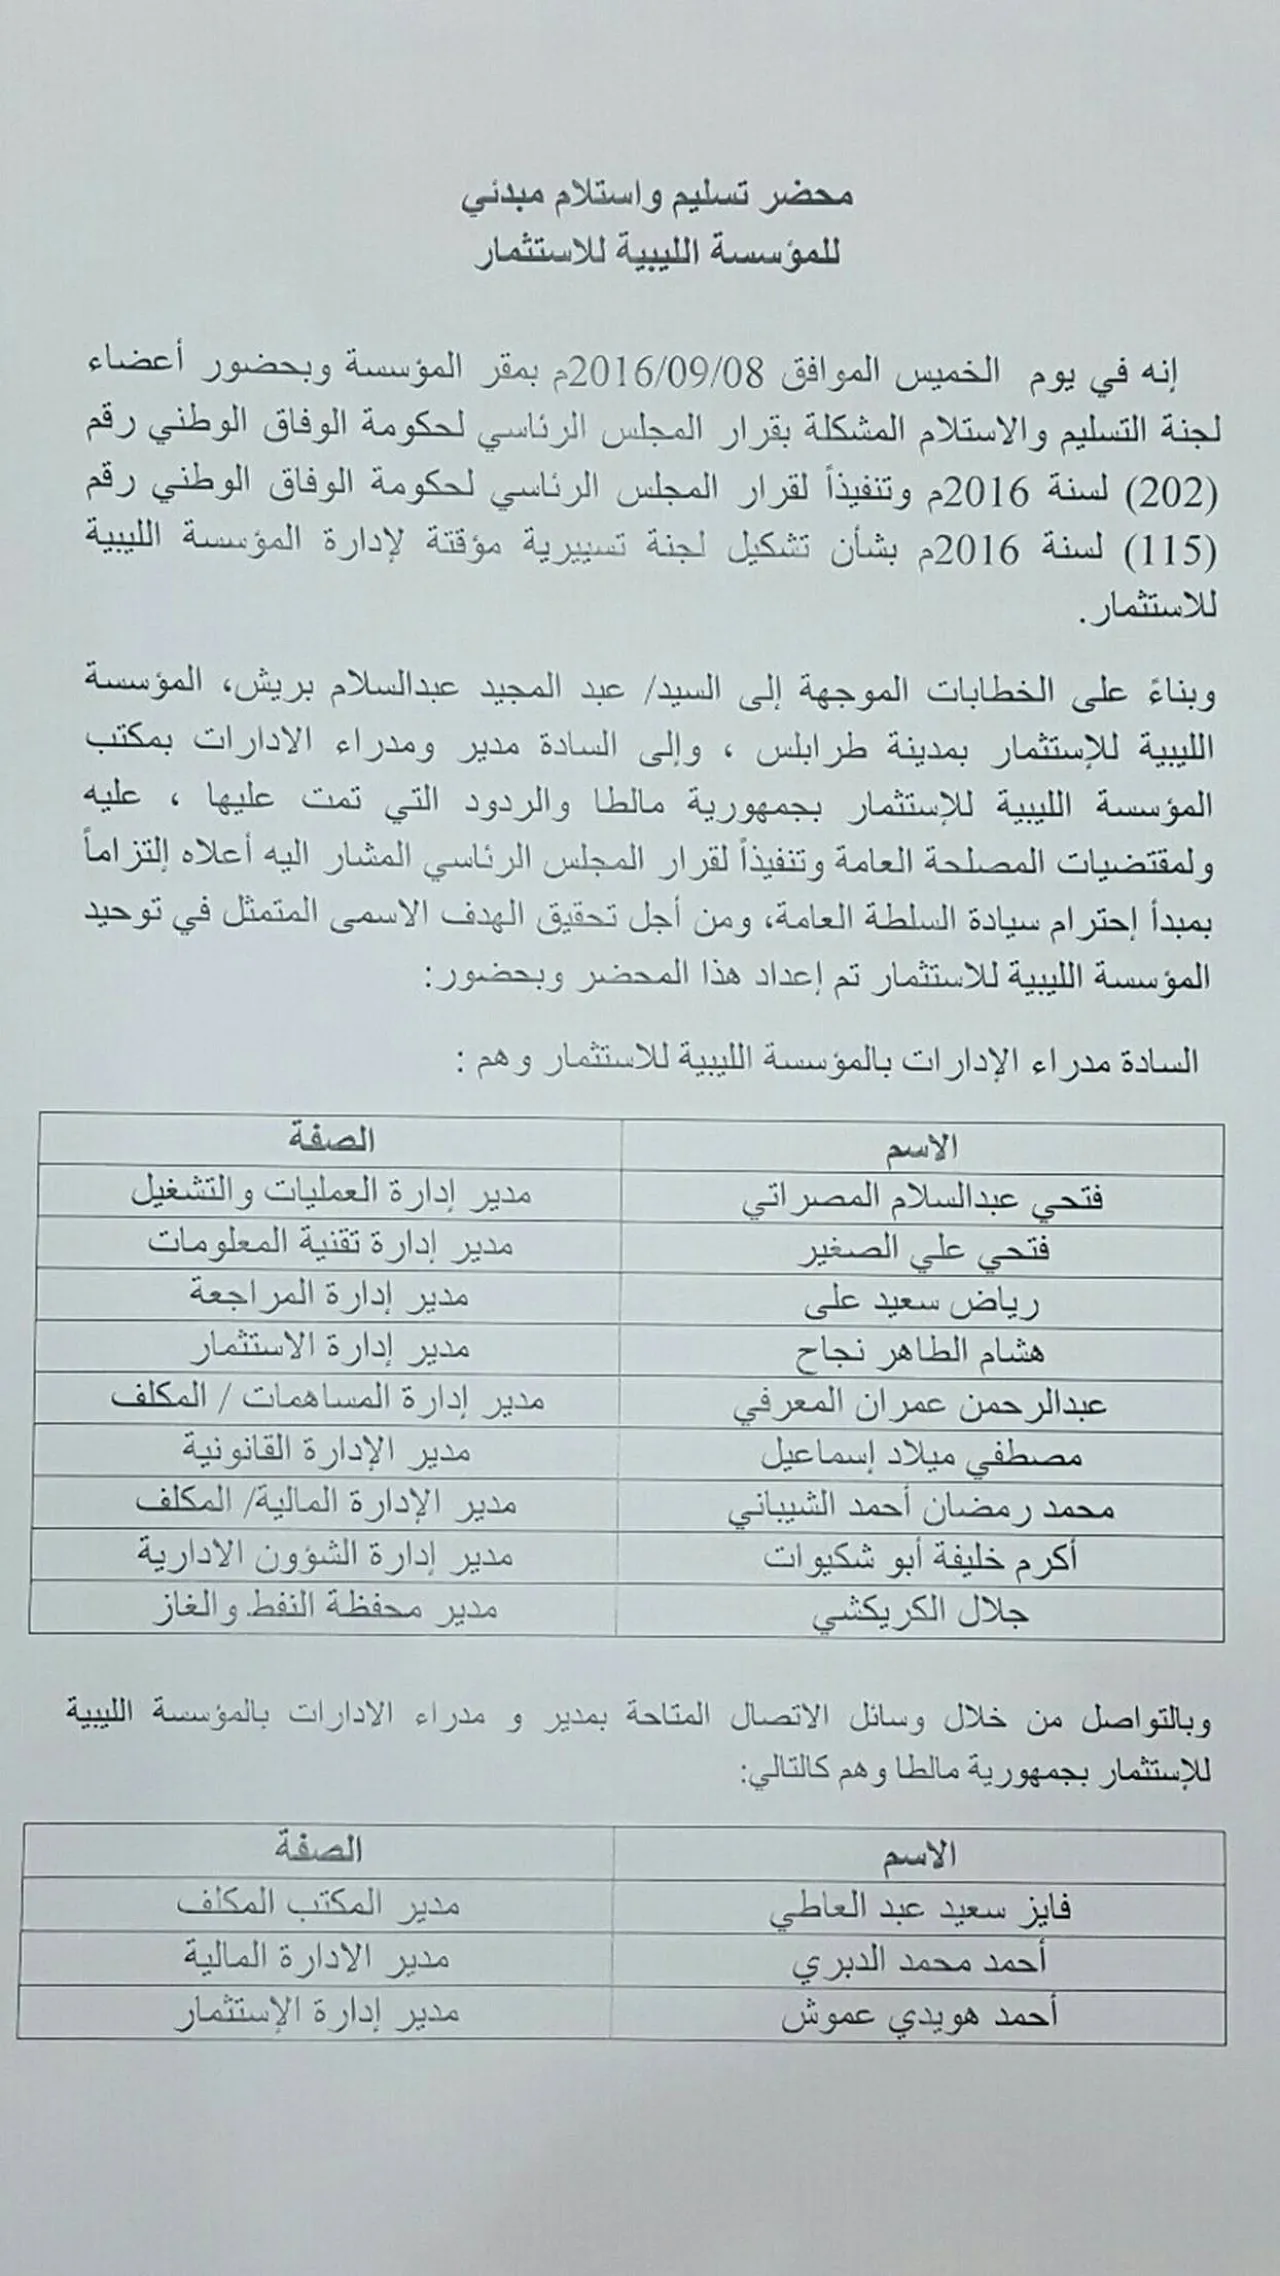 محضر تسليم واستلام مبدئي
للمؤسسة الليبية للاستثمار
إنه في يوم الخميس الموافق 2016/09/08م بمقر المؤسسة وبحضور أعضاء
لجنة التسليم والاستلام المشكلة بقرار المجلس الرئاسي لحكومة الوفاق الوطني رقم
(202) لسنة 2016م وتنفيذاً لقرار المجلس الرئاسي لحكومة الوفاق الوطني رقم
(115) لسنة 2016م بشأن تشكيل لجنة تسييرية مؤقتة لإدارة المؤسسة الليبية
للاستثمار.
وبناءً على الخطابات الموجهة إلى السيد/ عبد المجيد عبدالسلام بريش، المؤسسة
الليبية للإستثمار بمدينة طرابلس ، وإلى السادة مدير ومدراء الادارات بمكتب
المؤسسة الليبية للإستثمار بجمهورية مالطا والردود التي تمت عليها ، عليه
ولمقتضيات المصلحة العامة وتنفيذاً لقرار المجلس الرئاسي المشار اليه أعلاه إلتزاماً
بمبدأ إحترام سيادة السلطة العامة، ومن أجل تحقيق الهدف الاسمى المتمثل في توحيد
المؤسسة الليبية للاستثمار تم إعداد هذا المحضر وبحضور:
السادة مدراء الإدارات بالمؤسسة الليبية للاستثمار وهم :
الاسم الصفة
فتحي عبدالسلام المصراتي مدير إدارة العمليات والتشغيل
فتحي علي الصغير مدير إدارة تقنية المعلومات
رياض سعيد على مدير إدارة المراجعة
هشام الطاهر نجاح مدير إدارة الاستثمار
عبدالرحمن عمران المعرفي مدير إدارة المساهمات / المكلف
مصطفي ميلاد إسماعيل مدير الإدارة القانونية
محمد رمضان أحمد الشيباني مدير الإدارة المالية/ المكلف
أكرم خليفة أبو شكيوات مدير إدارة الشؤون الادارية
جلال الكريكشي مدير محفظة النفط والغاز
وبالتواصل من خلال وسائل الاتصال المتاحة بمدير و مدراء الادارات بالمؤسسة الليبية
للإستثمار بجمهورية مالطا وهم كالتالي:
الاسم الصفة
فايز سعيد عبد العاطي مدير المكتب المكلف
أحمد محمد الدبري مدير الادارة المالية
أحمد هويدي عموش مدير إدارة الإستثمار